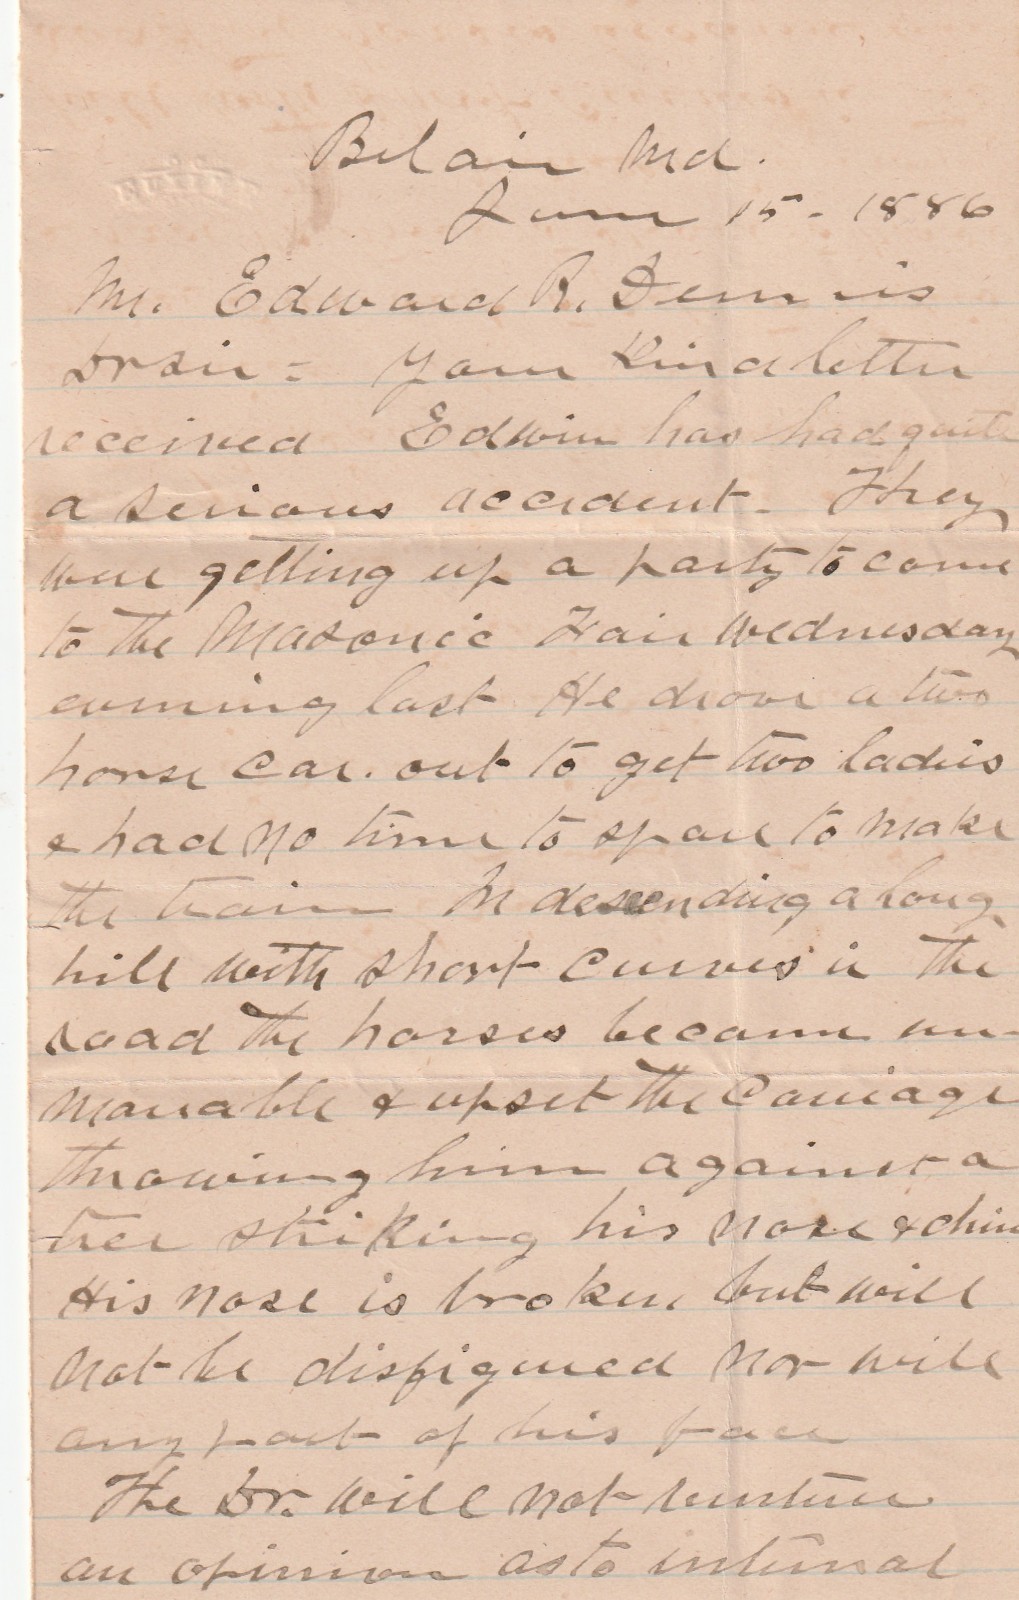 Belair Md.
June 15 - 1886
Mr. Edward R. Dennis
Dr Sir = Your Kind letter
received Edwin has had quite
a serious accident - They
were getting up a party to come
to the Masonic Fair Wednesday
evening last He drove a two
horse car. out to get two ladies
& had no time to spare to make
the train In descending a long
hill with short curves in the
road the horses became un-
manable & upset the Carriage
throwing him against a
tree striking his nose & chin
His nose is broken, but will
not be disfigured nor will
any part of his face
The Dr. will not venture
an opinion as to internal